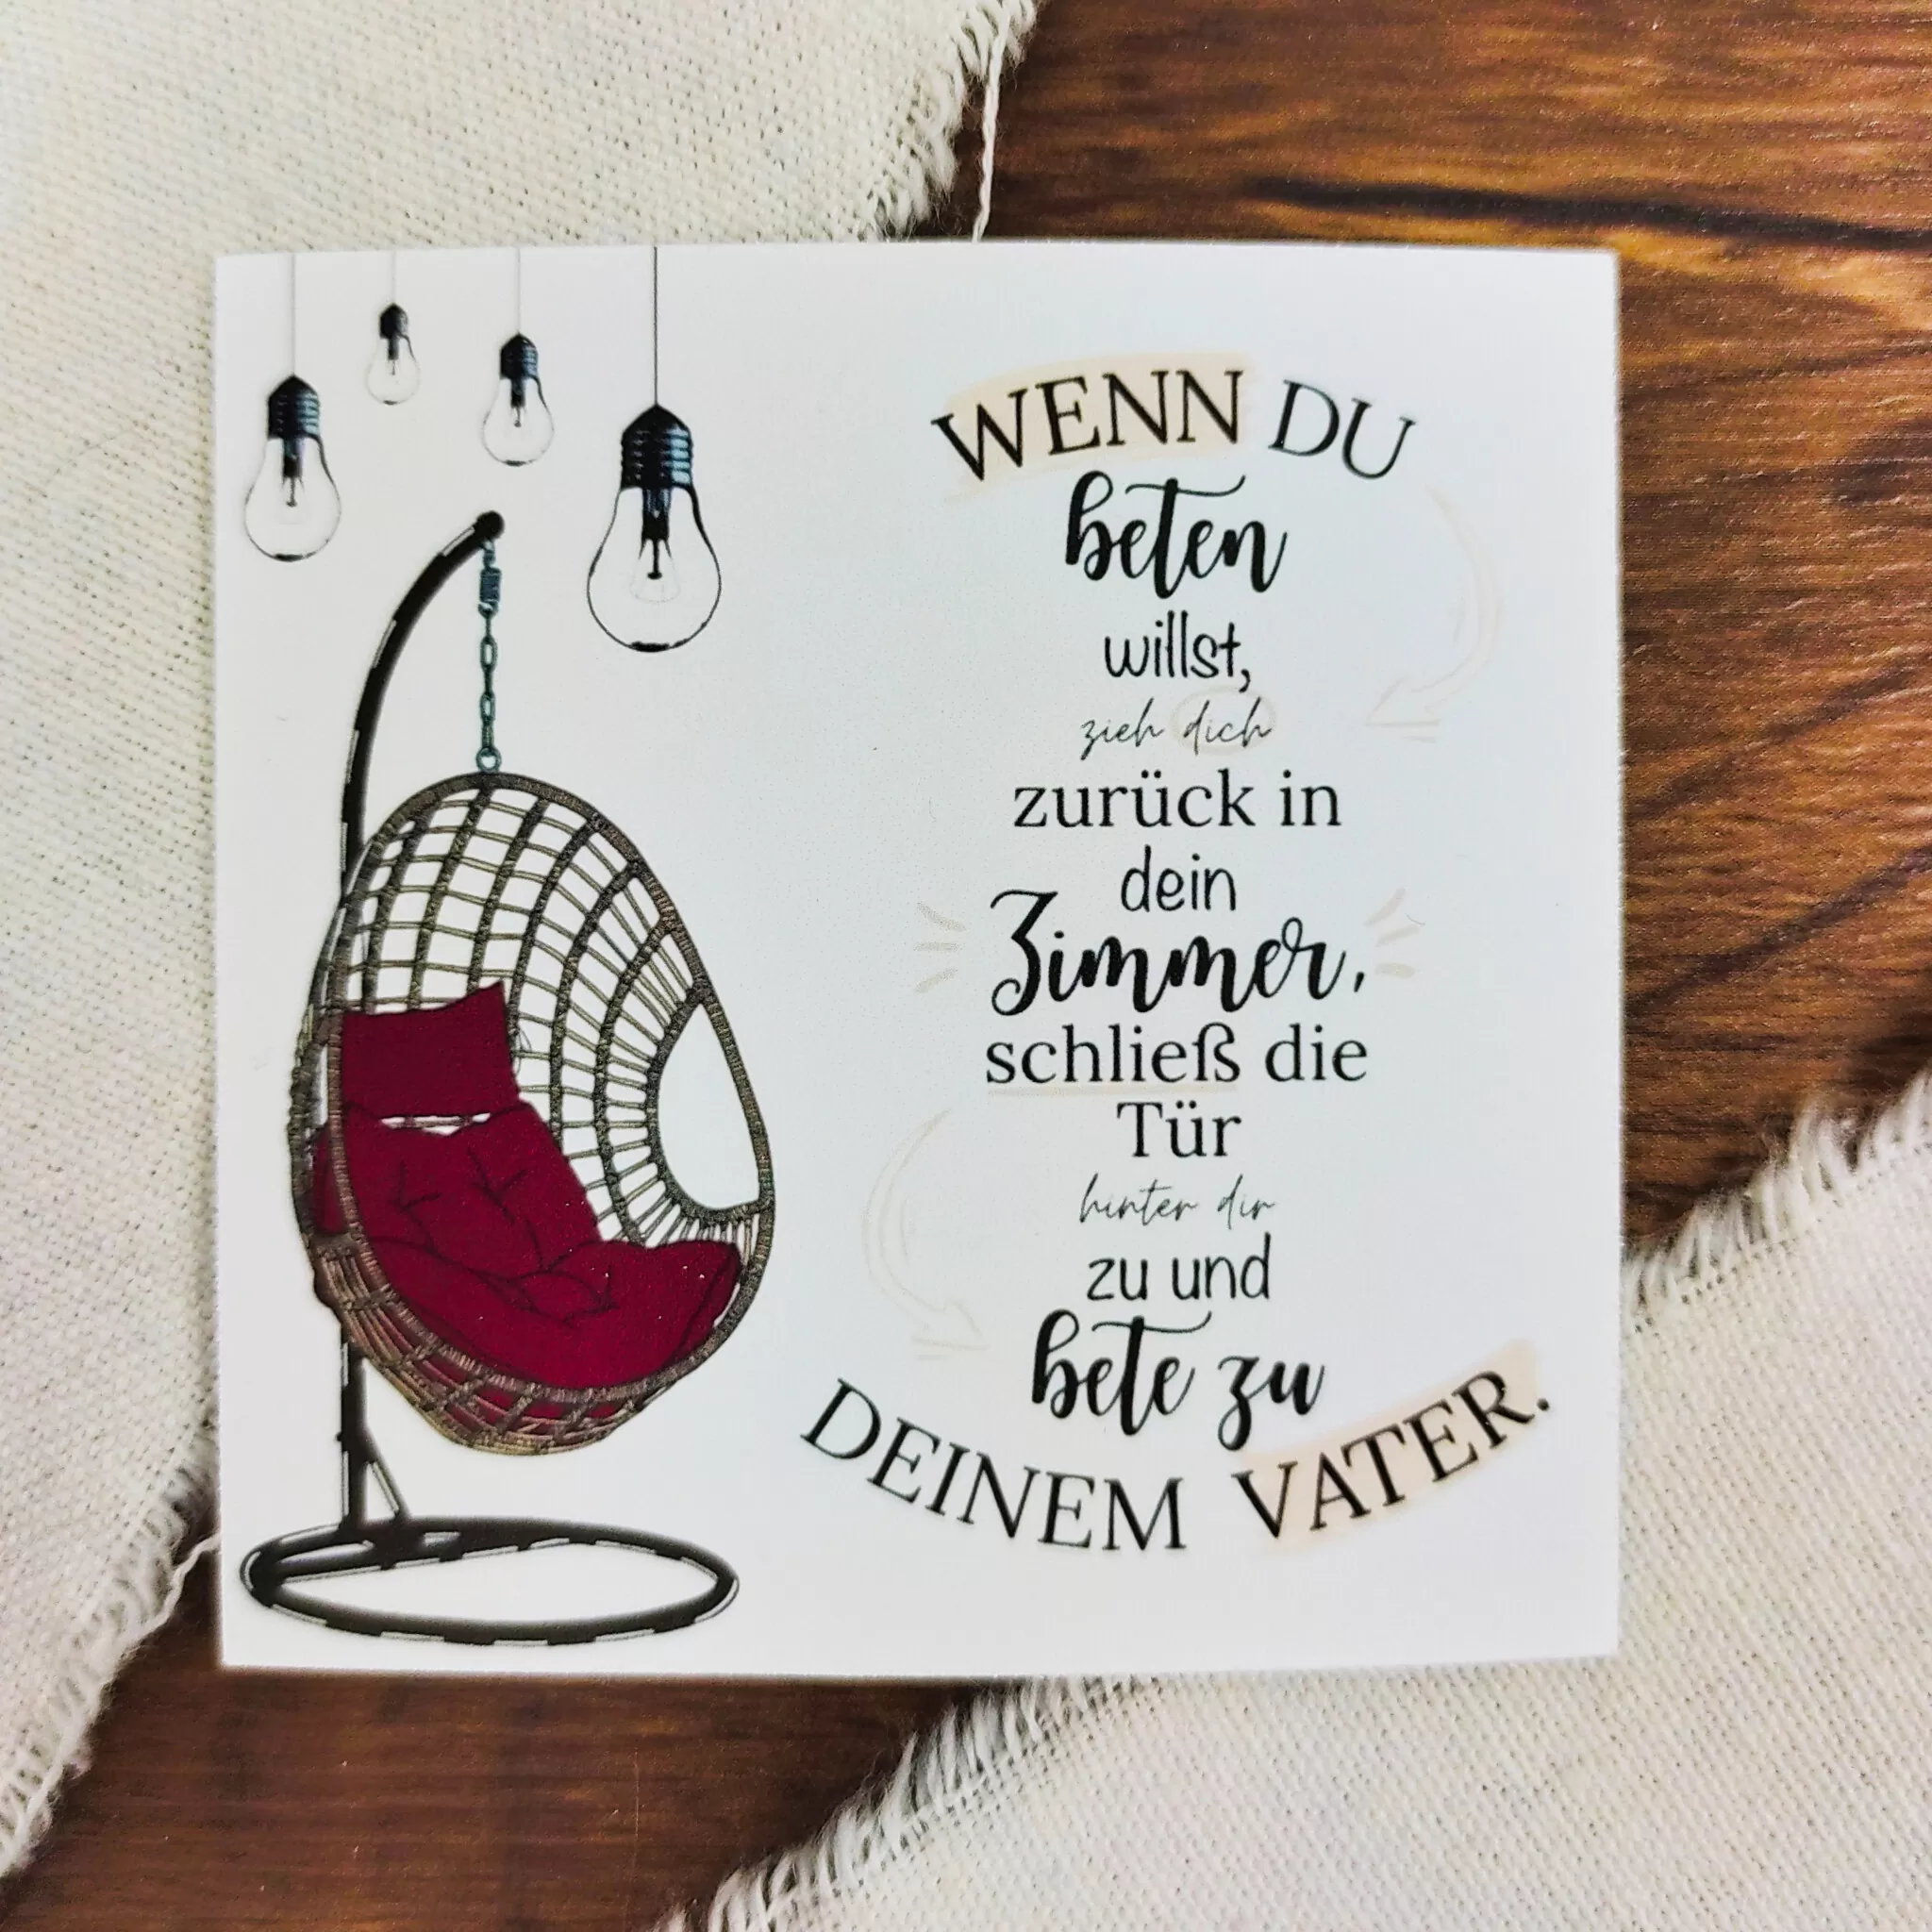 WENN DU
beten
willst,
zieh dich
zurück in
dein
Zimmer,
schließ die
Tür
hinter dir
zu und
bete zu
DEINEM VATER.